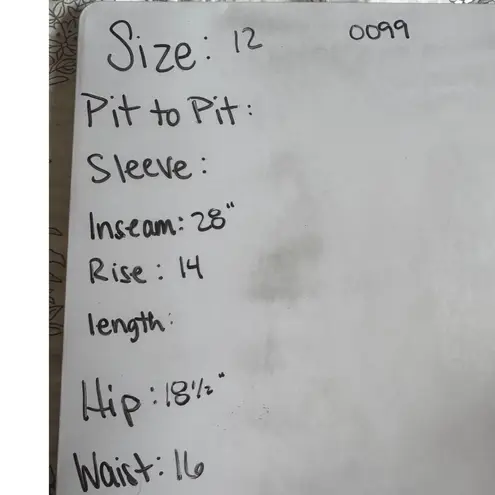 Size: 12 0099
Pit to Pit:
Sleeve:
Inseam: 28"
Rise: 14
length:
Hip: 18 1/2"
Waist: 16